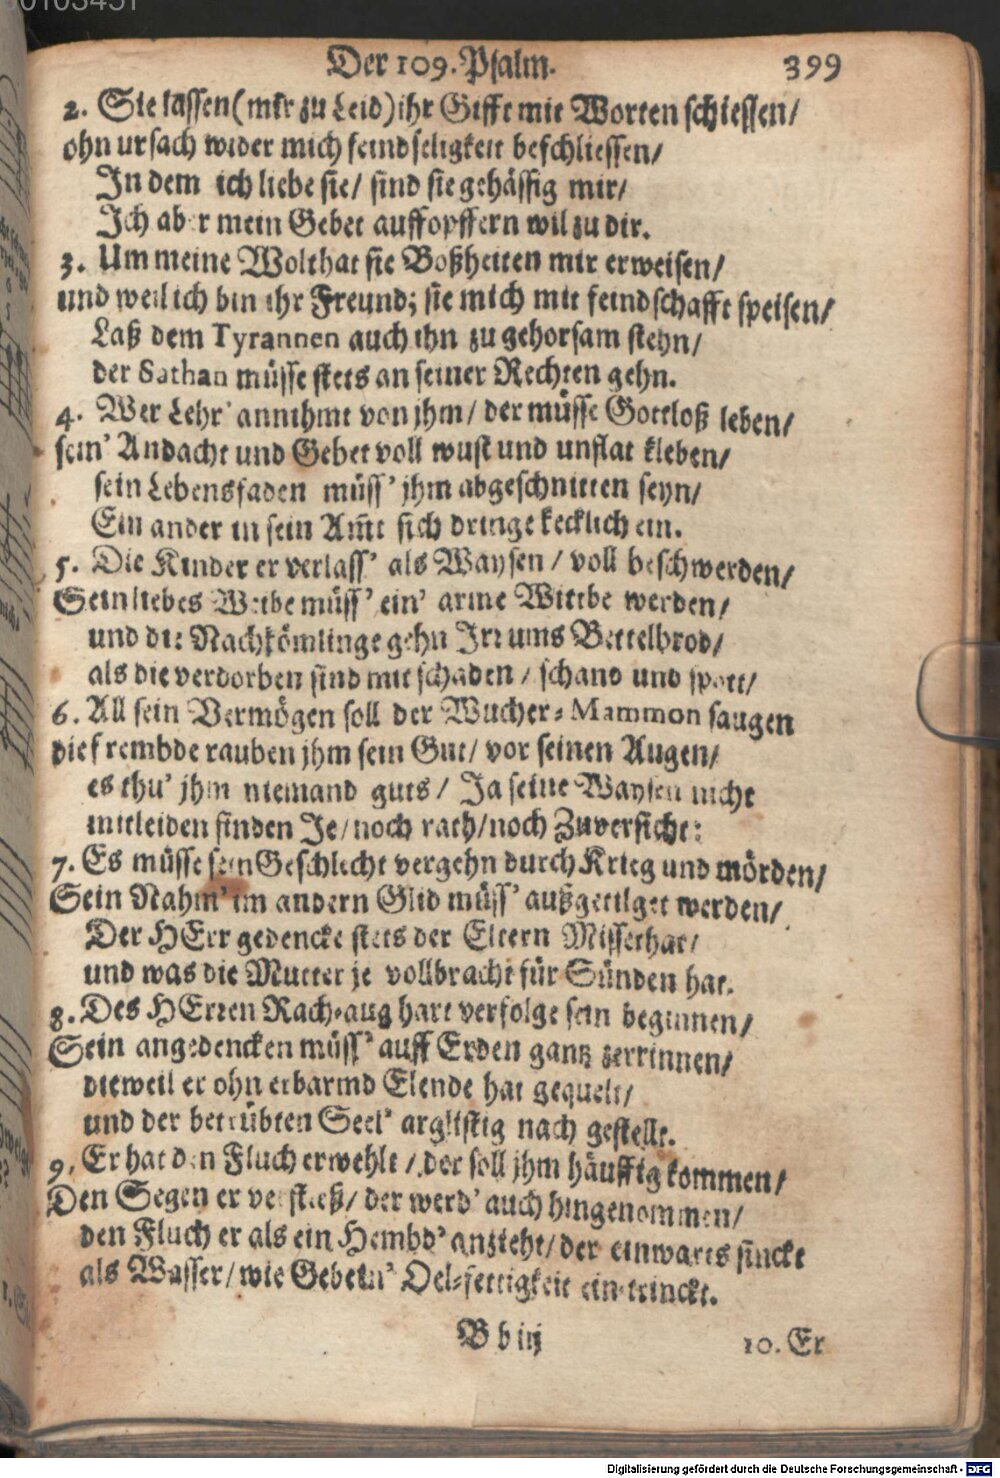 Der 109. Psalm. 399
2. Sie lassen (mir zu Leid) ihr Gifft mit Worten schiessen/
ohn ursach wider mich feindseligkeit beschliessen/
In dem ich liebe sie/ sind sie gehässig mir/
Ich aber mein Gebet auffopffern wil zu dir.
3. Um meine Wolthat sie Boßheiten mir erweisen/
und weil ich bin ihr Freund; sie mich mit feindschafft speisen/
Laß dem Tyrannen auch ihn zu gehorsam stehn/
der Sathan müsse stets an seiner Rechten gehn.
4. Wer Lehr' annihmt von jhm/ der müsse Gottloß leben/
sein' Andacht und Gebet voll wust und unflat kleben/
sein Lebensfaden müss' jhm abgeschnitten seyn/
Ein ander in sein Am̃t sich dringe kecklich ein.
5. Die Kinder er verlass' als Waysen/ voll beschwerden/
Sein liebes Weibe müss' ein' arme Wittbe werden/
und die Nachkömlinge gehn Irr ums Bettelbrod/
als die verdorben sind mit schaden/ schand und spott/
6. All sein Vermögen soll der Wucher-Mammon saugen
die frembde rauben jhm sein Gut/ vor seinen Augen/
es thu' jhm niemand guts/ Ja seine Waysen nicht
mitleiden finden Je/ noch rath/ noch Zuversicht:
7. Es müsse sein Geschlecht vergehn durch Krieg und mörden/
Sein Nahm' im andern Glid müss' außgetilget werden/
Der HErr gedencke stets der Eltern Missethat/
und was die Mutter je vollbracht für Sünden hat.
8. Des HErren Rach-aug hart verfolge sein beginnen/
Sein angedencken müss' auff Erden gantz zerrinnen/
dieweil er ohn erbarmd Elende hat gequelt/
und der betrübten Seel' arglistig nach gestellt.
9. Er hat den Fluch erwehlt/ der soll jhm häuffig kommen/
Den Segen er verstieß/ der werd' auch hingenommen/
den Fluch er als ein Hembd' anzieht/ der einwarts sinckt
als Wasser/ wie Gebein' Oel-fettigkeit ein-trinckt.
B b iij 10. Er
Digitalisierung gefördert durch die Deutsche Forschungsgemeinschaft - DFG